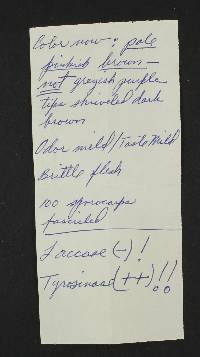 Color now: pale
pinkish brown –
not greyish purple
Tips shriveled dark
brown
Odor mild/Taste Mild
Brittle flesh
100 sporocarps
fascicled
Laccase (-) !
Tyrosinase (++) !!